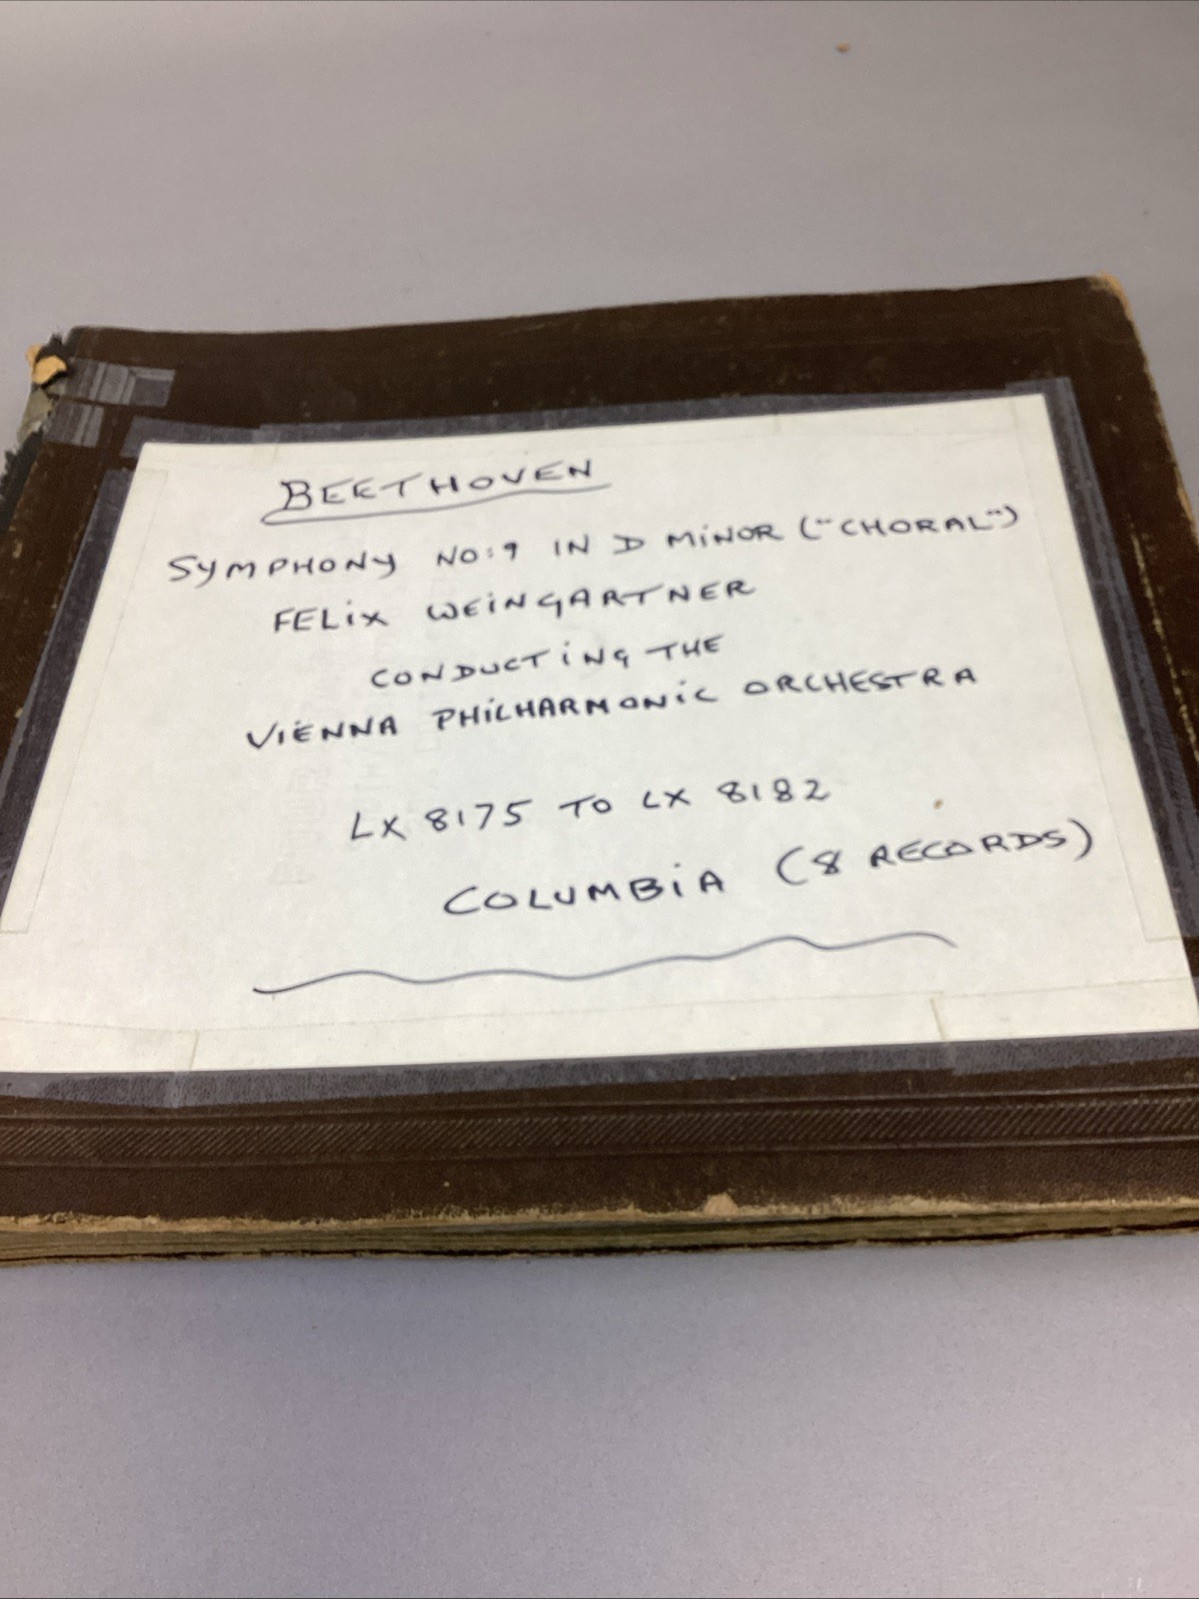 BEETHOVEN
SYMPHONY NO:9 IN D MINOR ("CHORAL")
FELIX WEINGARTNER
CONDUCTING THE
VIENNA PHILHARMONIC ORCHESTRA
LX 8175 TO LX 8182
COLUMBIA (8 RECORDS)